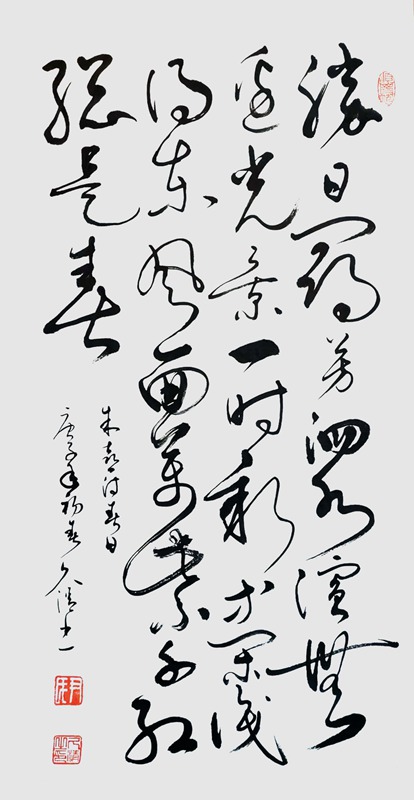 勝日尋芳泗水濱無
邊光景一时新等閑識
得東風面萬紫千紅
總是春
朱熹詩春日
庚子年初春書